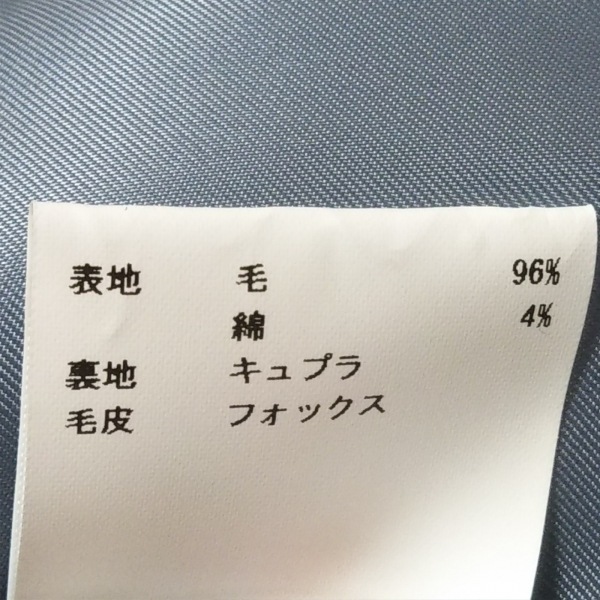 表地 毛 96%
綿 4%
裏地 キュプラ
毛皮 フォックス